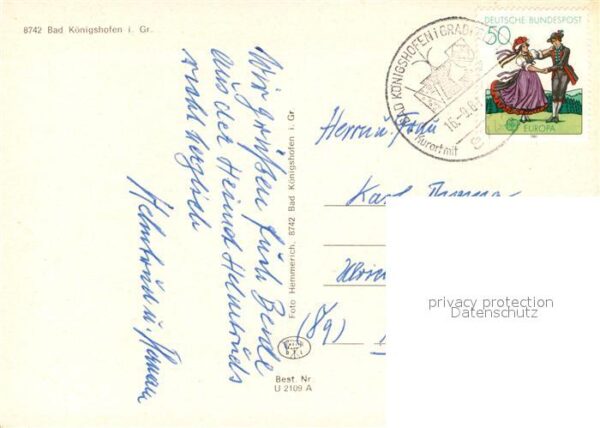 8742 Bad Königshofen i. Gr.
Wir grüßen Euch Beide
aus der Heimat Helmtruds
recht herzlich
Helmtrud u.
Foto Hemmerich, 8742 Bad Königshofen i. Gr
Best. Nr.
U 2109 A
BAD KÖNIGSHOFEN i GRABF
16.-9.8
Kurort mit
DEUTSCHE BUNDESPOST
50
EUROPA
Herrn u. Frau
Karl
(89)
privacy protection
Datenschutz